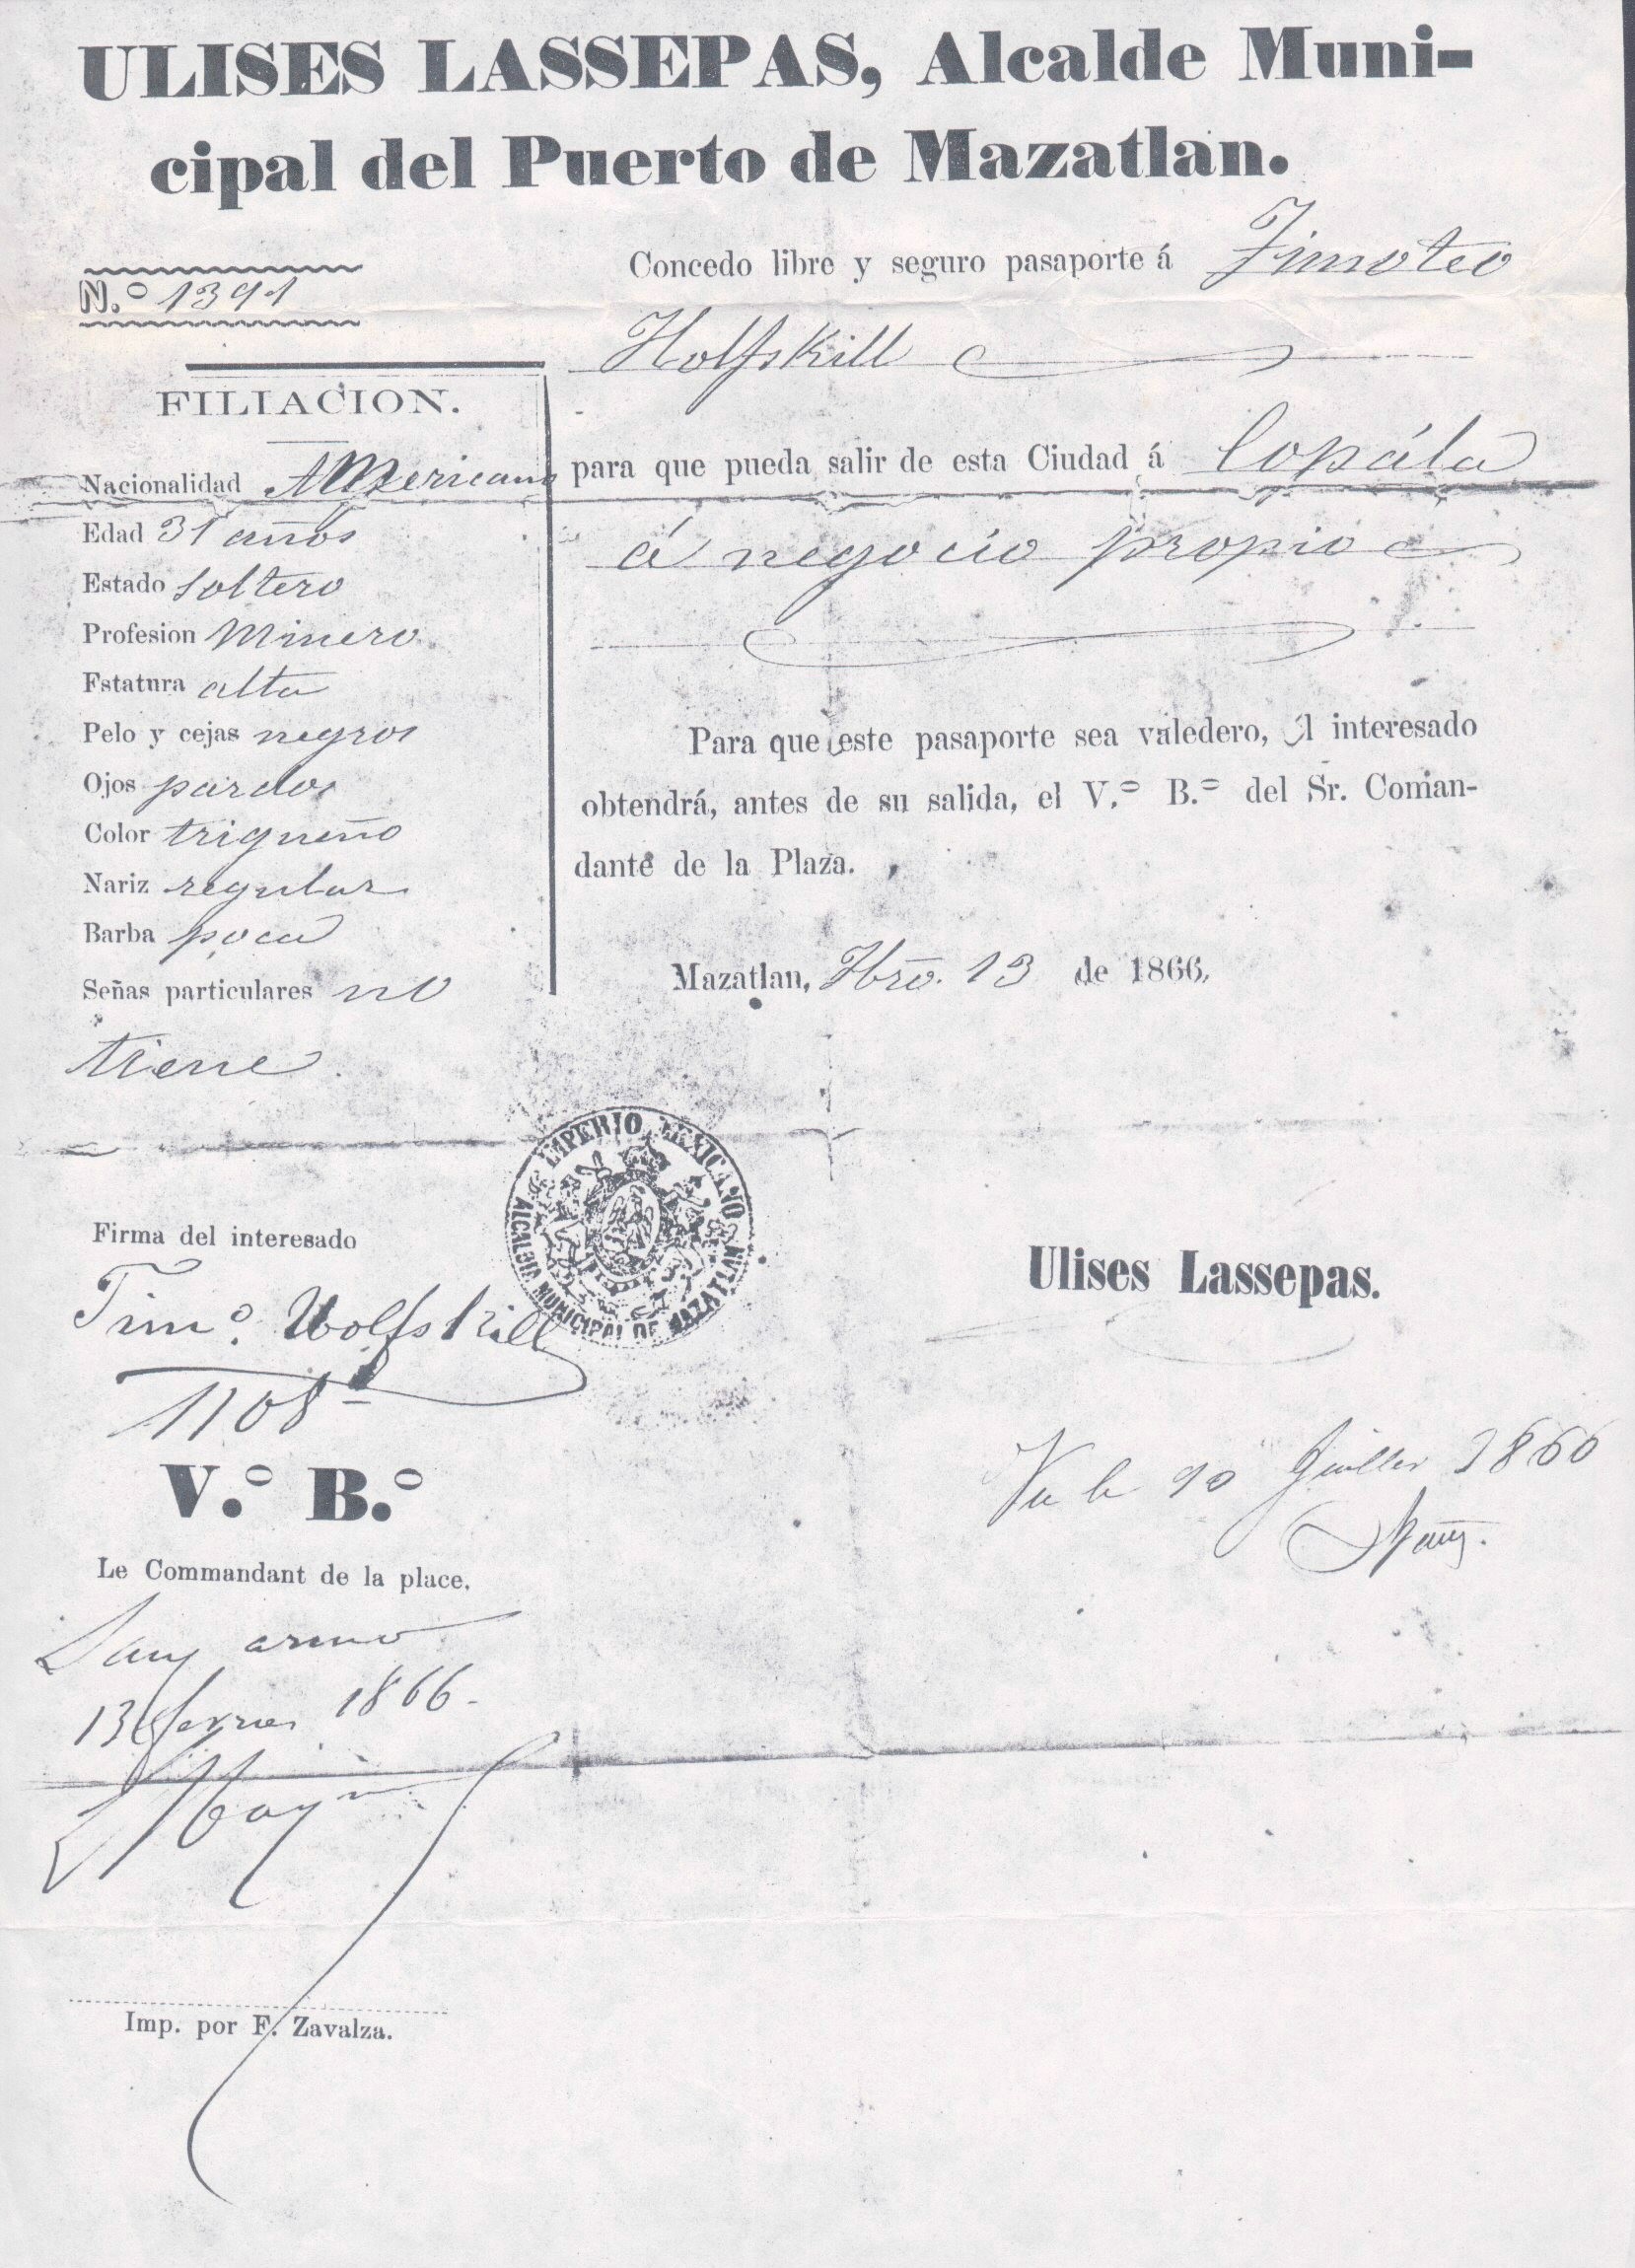 ULISES LASSEPAS, Alcalde Muni-
cipal del Puerto de Mazatlan.
N.º 1391
Concedo libre y seguro pasaporte á Timoteo
Holfskill
para que pueda salir de esta Ciudad á Copála
á negocio propio
Para que este pasaporte sea valedero, el interesado
obtendrá, antes de su salida, el V.º B.º del Sr. Coman-
dante de la Plaza.
Mazatlan, Fbrō. 13 de 1866.
FILIACION.
Nacionalidad Americano
Edad 31 años
Estado soltero
Profesion Minero
Estatura alta
Pelo y cejas negros
Ojos pardos
Color trigueño
Nariz regular
Barba poca
Señas particulares no
tiene
IMPERIO MEXICANO
ALCALDIA MUNICIPAL DE MAZATLAN
Firma del interesado
Timº. Wolfskill
1108
Ulises Lassepas.
V.º B.º
Le Commandant de la place.
13 fevrier 1866.
Vu le 20 Juillet 1866
Imp. por F. Zavalza.